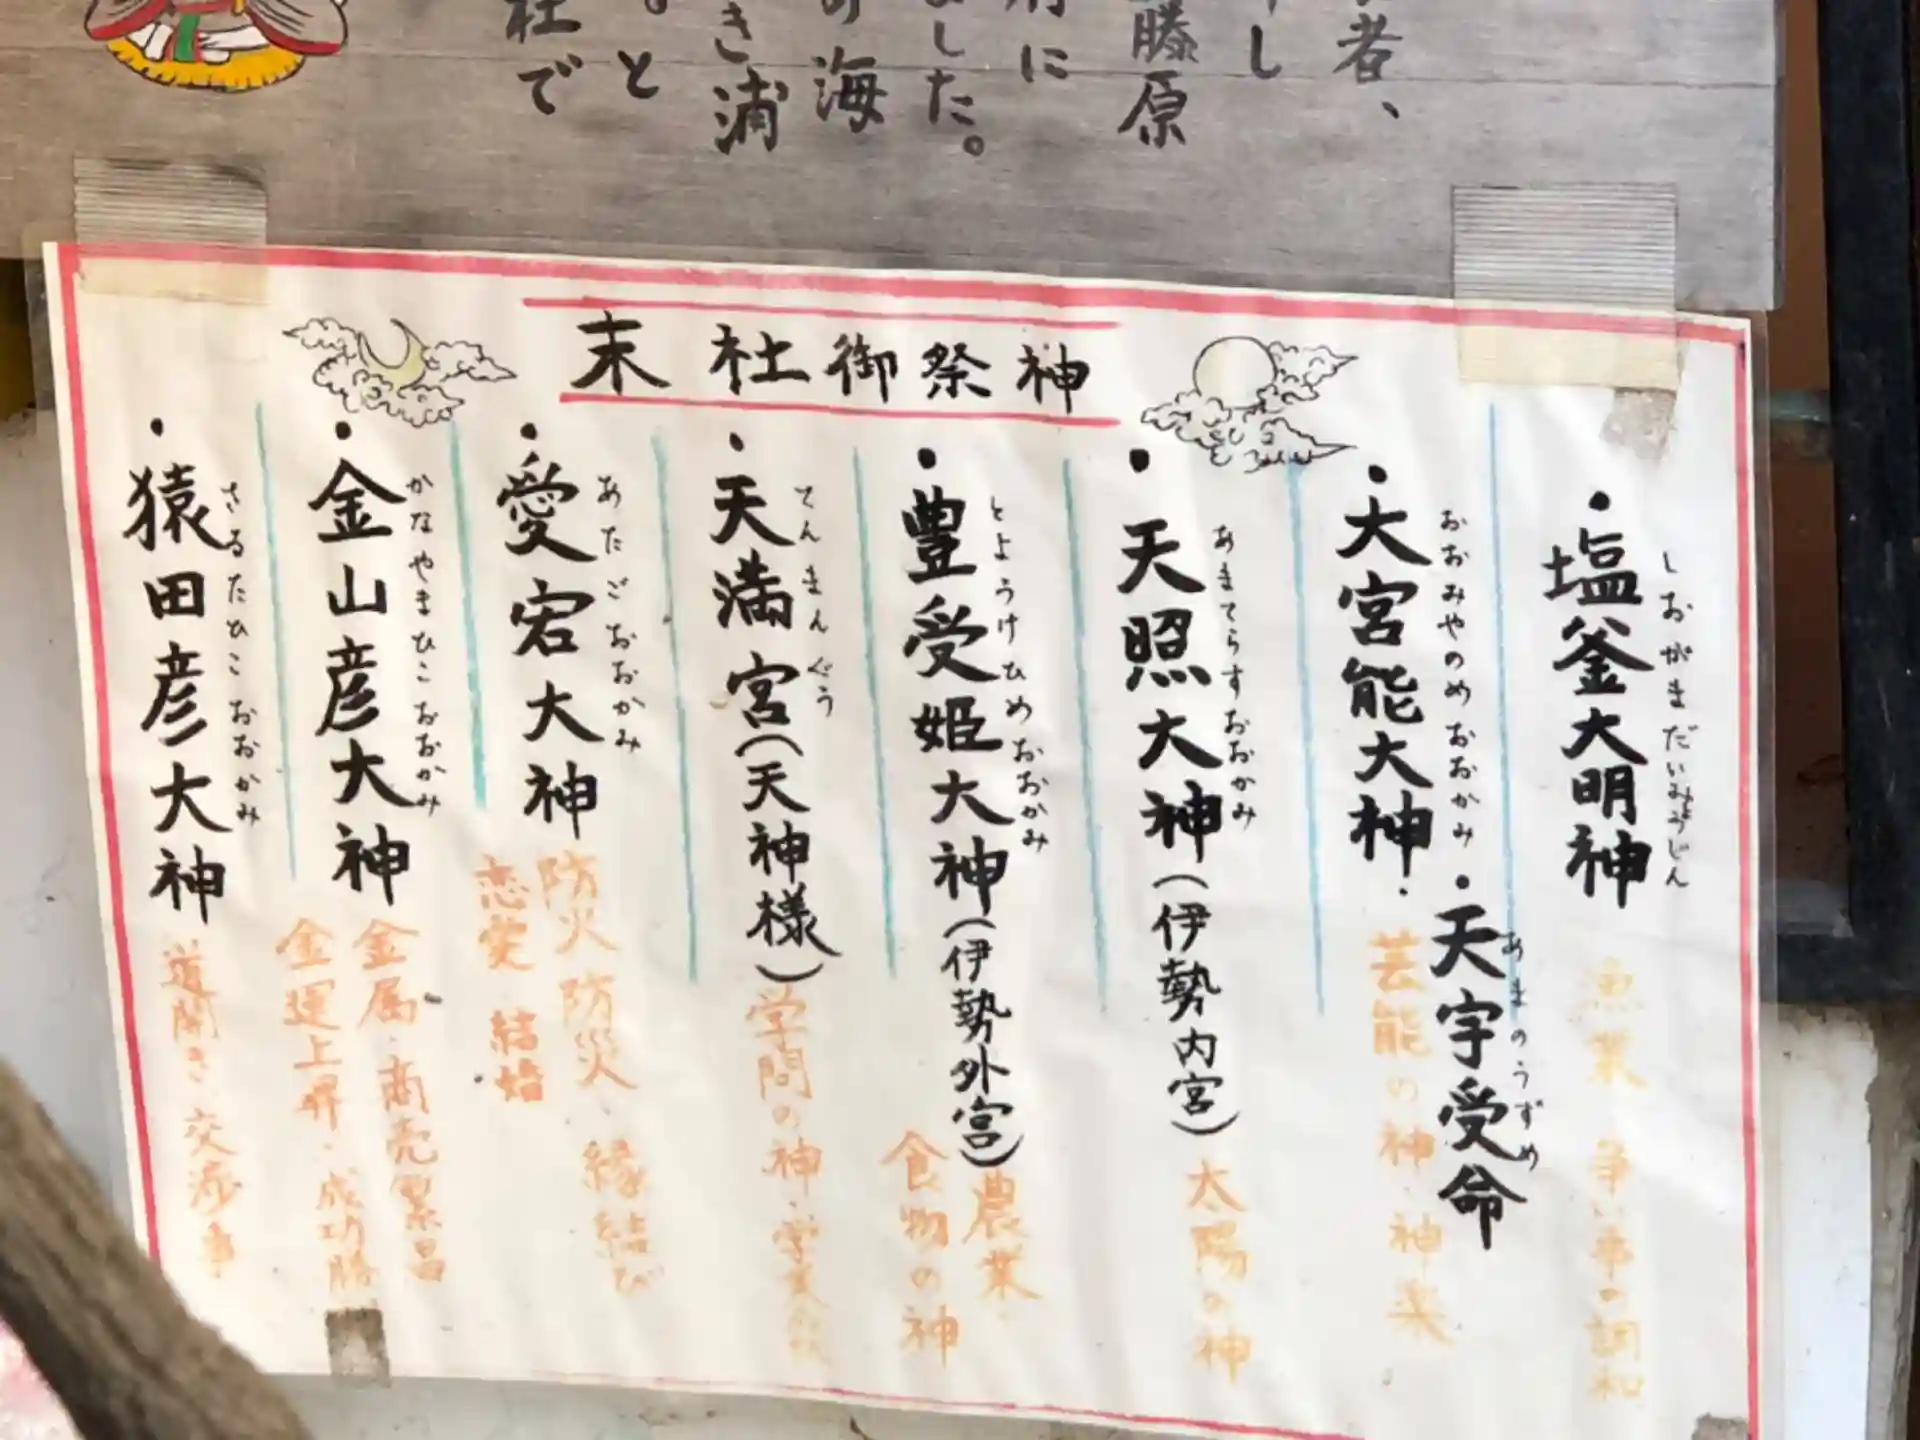 者、
し
藤原
に
ました。
の海
き浦
。と
社で
末社御祭神
・塩釜大明神
しおがまだいみょうじん
漁業 争い事の調和
・大宮能大神・天宇受命
おおみやのめおおかみ
あまのうずめ
芸能の神・神楽
・天照大神(伊勢内宮)
あまてらすおおかみ
太陽の神
・豊受姫大神(伊勢外宮)
とようけひめおおかみ
農業・
食物の神
・天満宮(天神様)
てんまんぐう
学問の神・学業
・愛宕大神
あたごおおかみ
防火防災、縁結び
恋愛 結婚
・金山彦大神
かなやまひこおおかみ
金属・商売繁昌
金運上昇・成功勝
・猿田彦大神
さるたひこおおかみ
道開き、交渉事